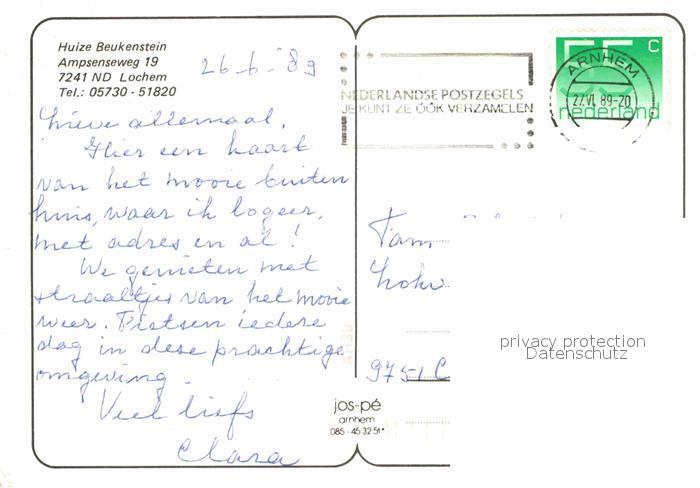 Huize Beukenstein
Ampsenseweg 19
7241 ND Lochem
Tel.: 05730 - 51820
26-6-'89
Lieve allemaal,
Hier een kaart
van het mooie buiten
huis, waar ik logeer,
met adres en al!
We genieten met
straaltjes van het mooie
weer. Fietsen iedere
dag in deze prachtige
omgeving.
Veel liefs
Clara
NEDERLANDSE POSTZEGELS
JE KUNT ZE ÓÓK VERZAMELEN
55 c
nederland
ARNHEM
27.VI.89-20
Fam
9751 C
jos-pé
arnhem
085-45 32 51*
privacy protection
Datenschutz